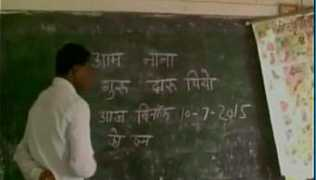 आम नाना
गुरु दारू पियो
आज दिनाँक 10-7-2015